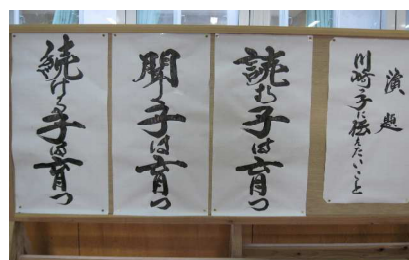 演題
川崎っ子に伝えたいこと
読む子は育つ
聞く子は育つ
続ける子は育つ